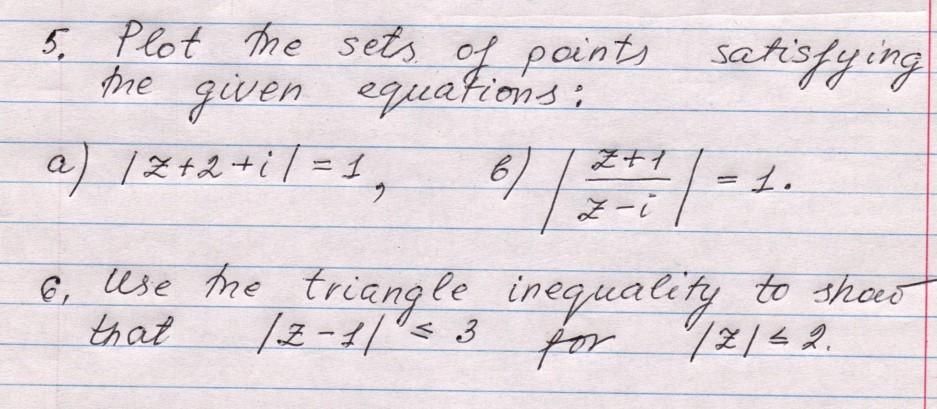 5. Plot the sets of points satisfying
the given equations:
a) |z+2+i| = 1, b) |(z+1)/(z-i)| = 1.
6. Use the triangle inequality to show
that |z-1| ≤ 3 for |z| ≤ 2.